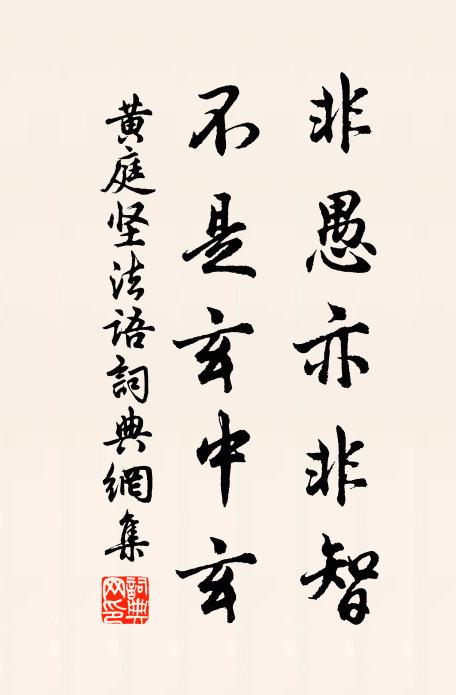 非愚亦非智
不是玄中玄
黄庭坚法语詞典網集
詞典網印